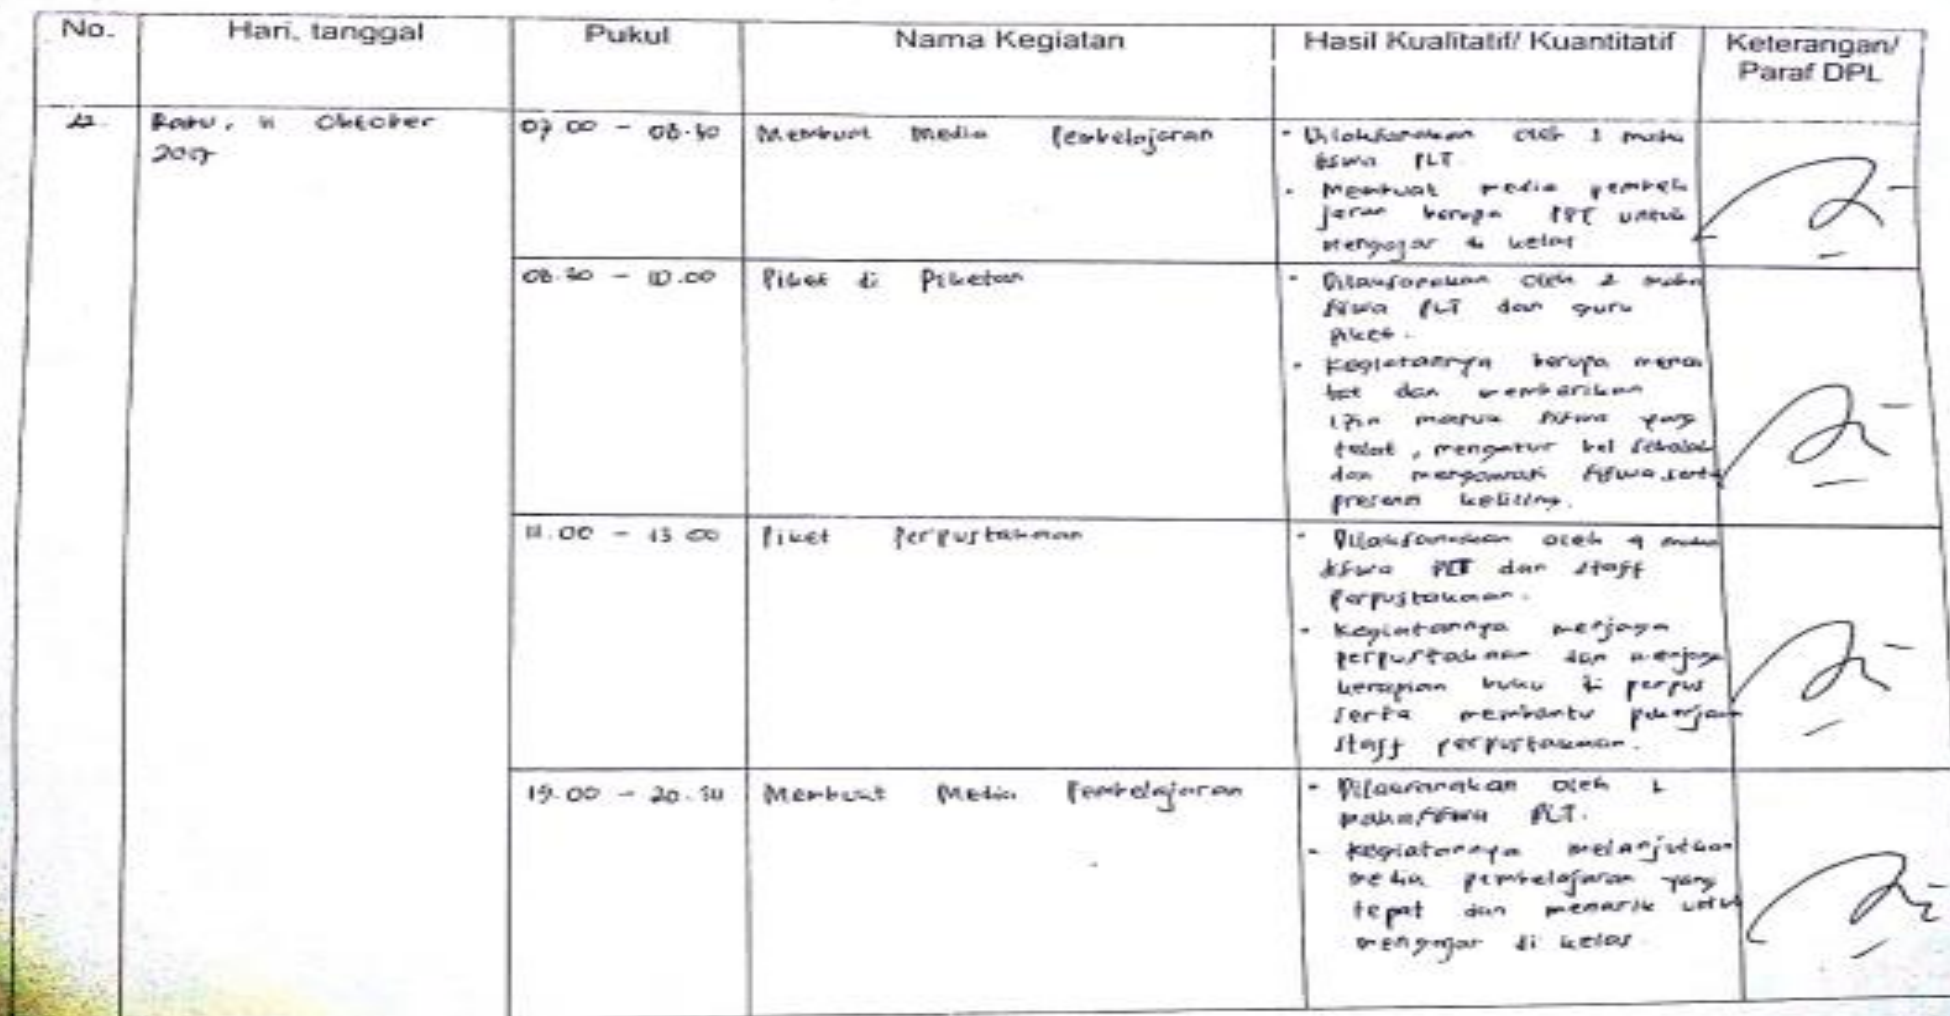 No. Hari, tanggal Pukul Nama Kegiatan Hasil Kualitatif/ Kuantitatif Keterangan/
Paraf DPL
Rabu, 11 Oktober
2017
07.00 - 08.30 Membuat Media Pembelajaran
- Dilaksanakan oleh 1 maha
siswa PLT.
- Membuat media pembela
jaran berupa PPT untuk
mengajar di kelas
08.30 - 10.00 Piket di Piketan
- Dilaksanakan oleh 2 maha
siswa PLT dan guru
piket.
- Kegiatannya berupa
dan memberikan
izin masuk siswa yang
telat, mengatur bel sekolah
dan mengawasi siswa serta
presensi keliling.
11.00 - 13.00 Piket Perpustakaan
- Dilaksanakan oleh 4 maha
siswa PLT dan staff
Perpustakaan.
- Kegiatannya menjaga
perpustakaan dan menjaga
kerapian buku di perpus
serta membantu pekerjaan
staff perpustakaan.
19.00 - 20.30 Membuat Media Pembelajaran
- Dilaksanakan oleh 1
mahasiswa PLT.
- Kegiatannya melanjutkan
media pembelajaran yang
tepat dan menarik untuk
mengajar di kelas